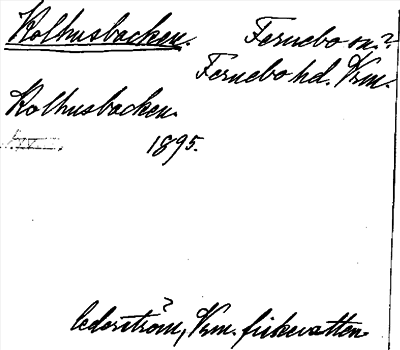 Kolhusbacken. Fernebo sn.?
Fernebo hd. Vrm.
Kolhusbacken.
1895.
Cederström, Vrm. fiskevatten